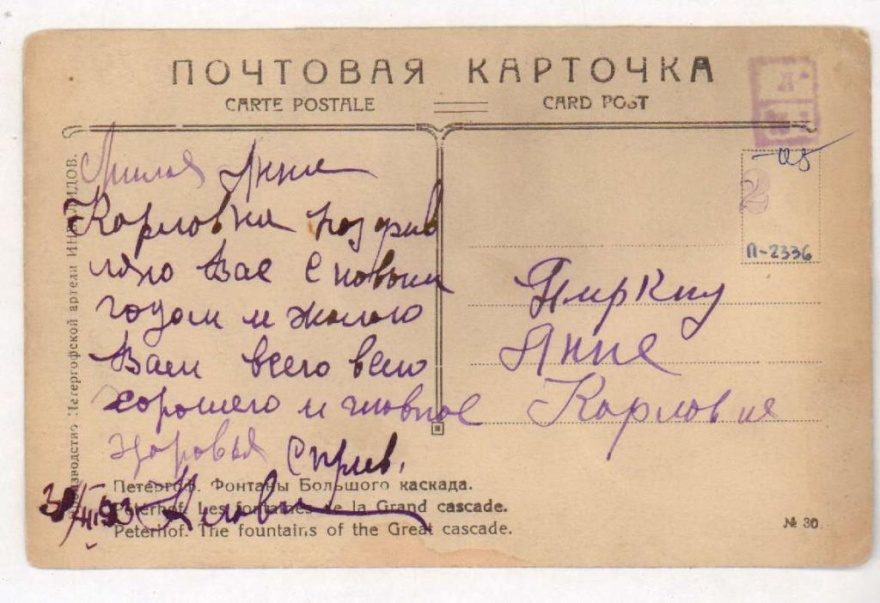 ПОЧТОВАЯ КАРТОЧКА
CARTE POSTALE
CARD POST
Милая Анна
Карловна поздрав
ляю Вас с новым
годом и желаю
Вам всего
хорошего и главное
здоровья С прив.
Анне
Карловне
-05
2
П-2336
Производство Петергофской артели ИНВАЛИДОВ.
Петергоф. Фонтаны Большого каскада.
Peterhof. Les fontaines de la Grand cascade.
Peterhof. The fountains of the Great cascade.
№ 30.